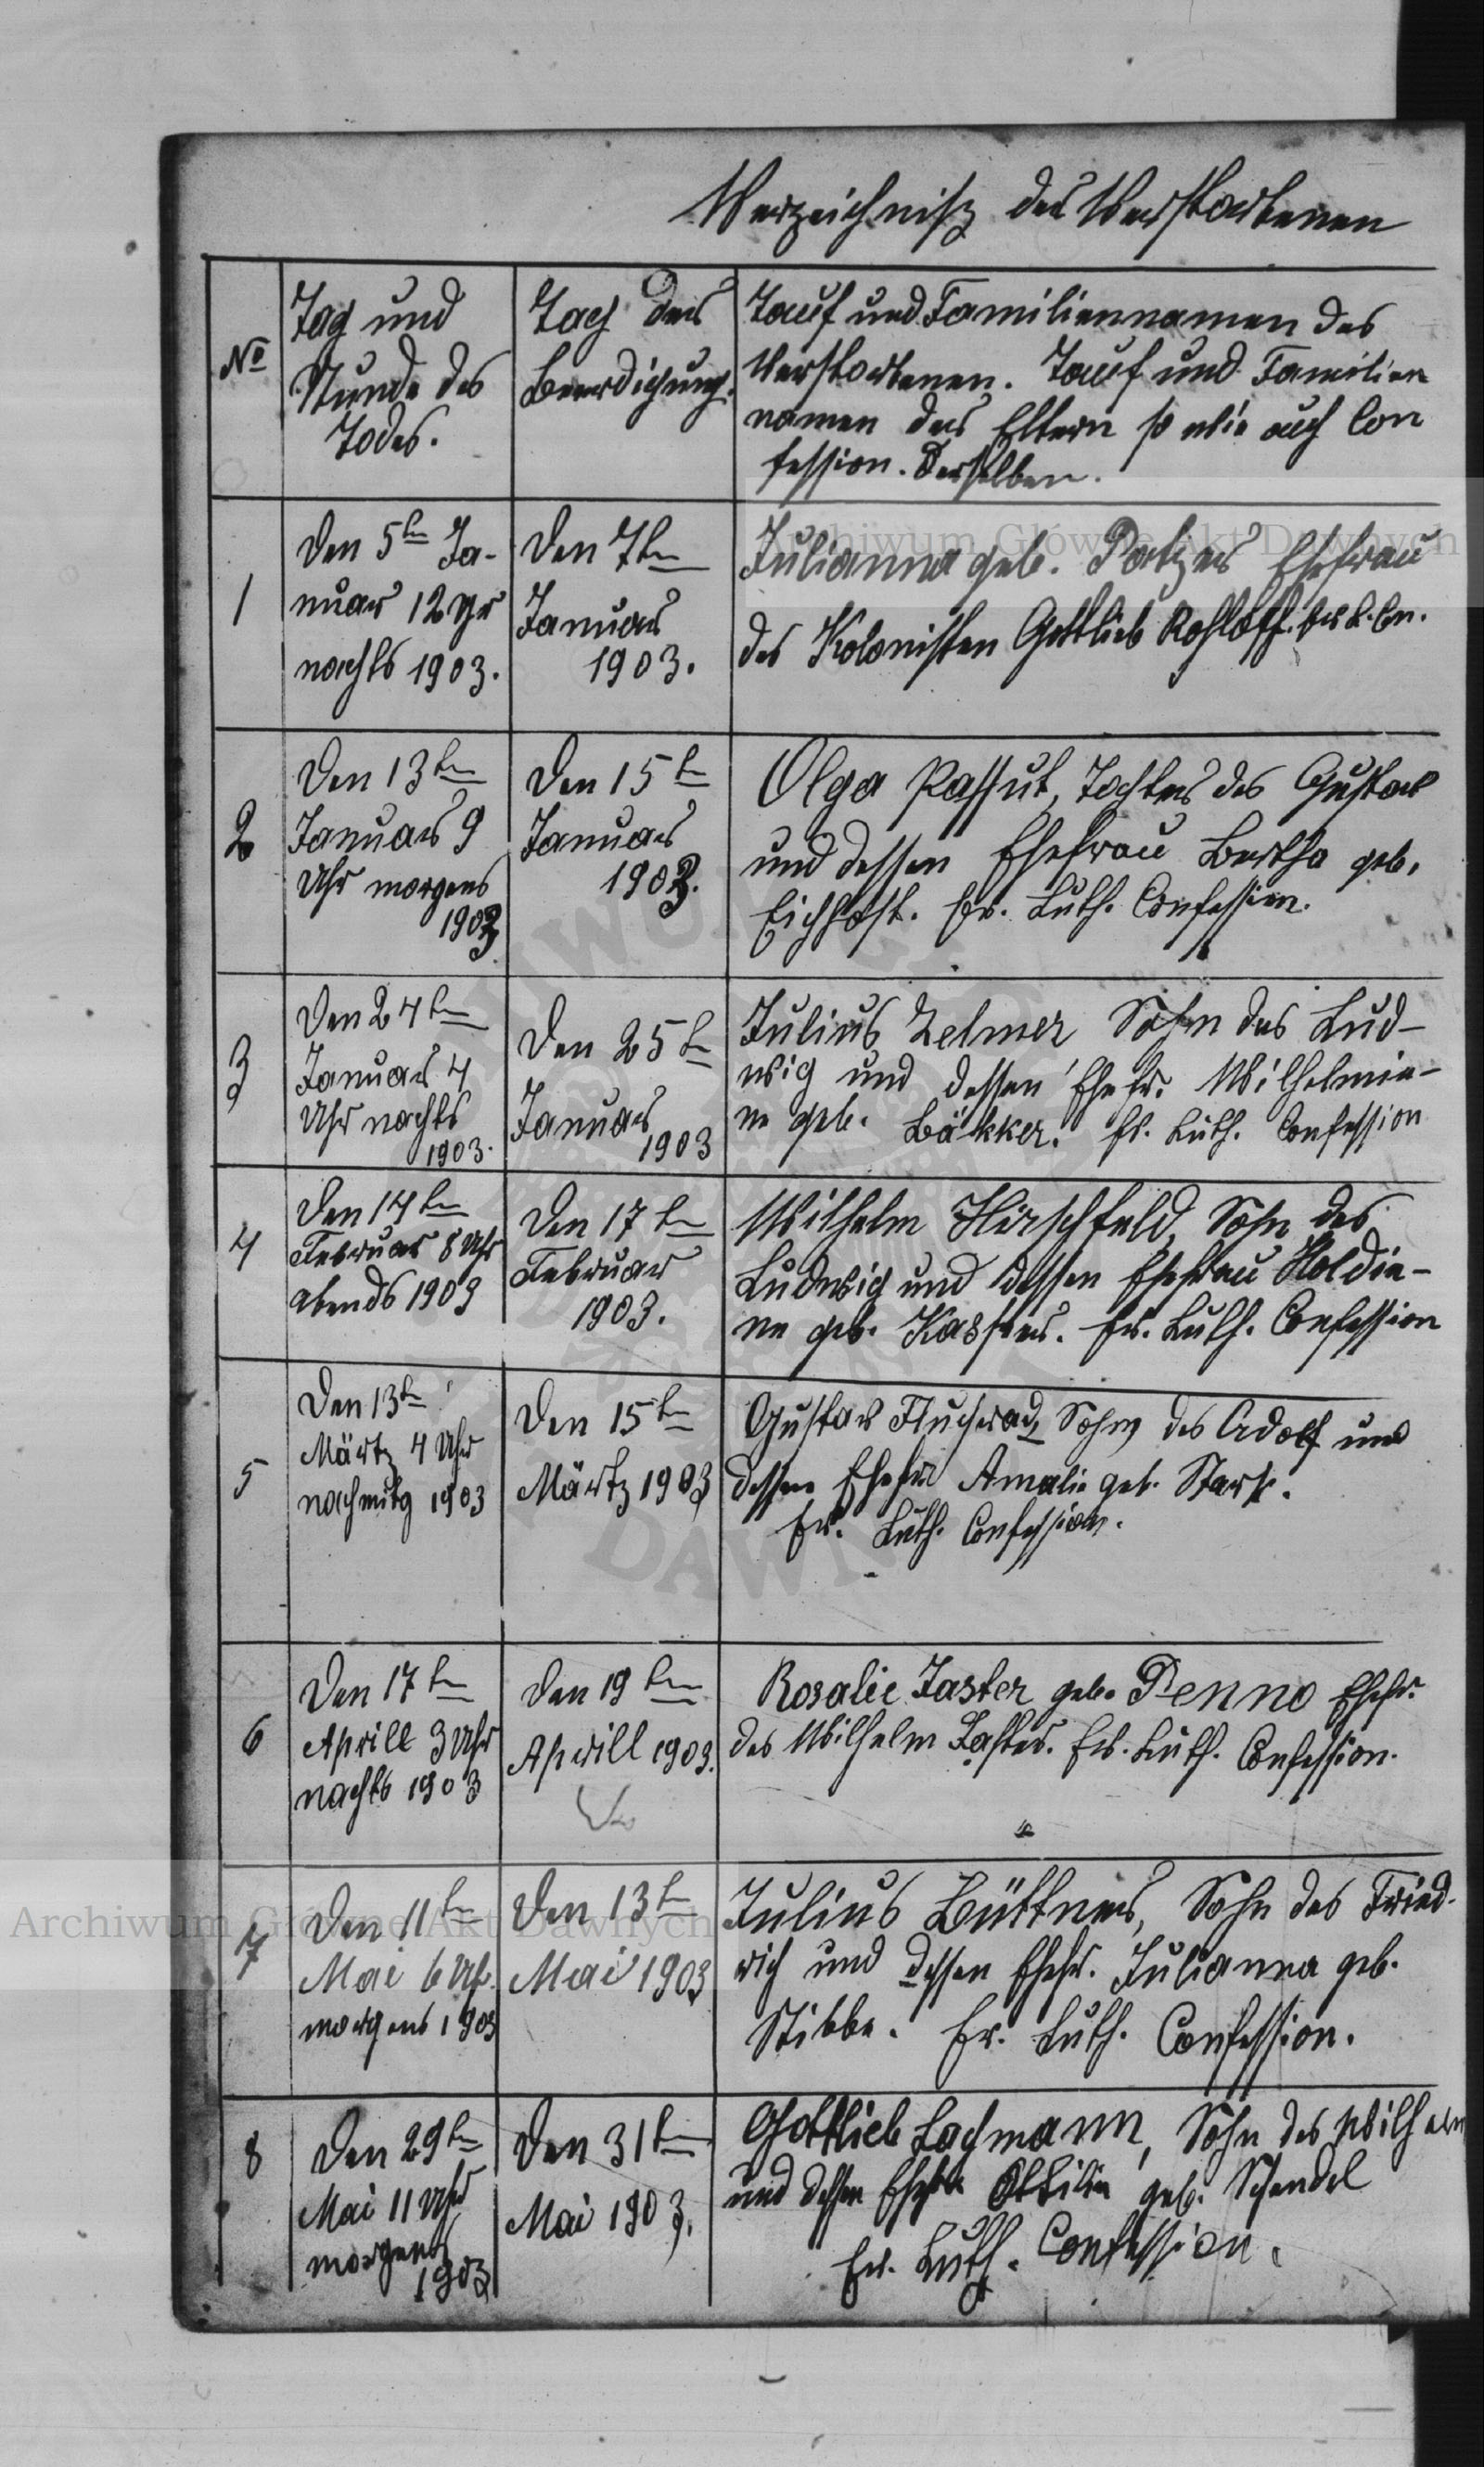 Verzeichniß der Verstorbenen
№
Tag und
Stunde des
Todes.
Tag der
Beerdigung.
Tauf und Familiennamen des
Verstorbenen. Tauf und Familien
namen der Eltern so wie auch Con
fession. Derselben.
1
Den 5ten Ja-
nuar 12 Uhr
nachts 1903.
Den 7ten
Januar
1903.
Julianna geb. Patzer Ehefrau
des Kolonisten Gottlieb Rohloff.
2
Den 13ten
Januar 9
Uhr morgens
1903
Den 15ten
Januar
1903.
Olga Passut, Tochter des Gustav
und dessen Ehefrau Bertha geb.
Eichhost. Ev. Luth. Confession.
3
Den 24ten
Januar 4
Uhr nachts
1903.
Den 25ten
Januar
1903
Julius Zelmer Sohn des Lud-
wig und dessen Ehefr. Wilhelmin-
ne geb. Bäkker. Ev. Luth. Confession
4
Den 14ten
Februar 8 Uhr
abends 1903
Den 17ten
Februar
1903.
Wilhelm Hirschfeld, Sohn des
Ludwig und dessen Ehefrau Holdin-
ne geb. Ev. Luth. Confession
5
Den 13ten
Märtz 4 Uhr
nachmitg 1903
Den 15ten
Märtz 1903
Gustav Sohn des Adolf und
dessen Ehefr Amalie geb. Stark.
Ev. Luth. Confession.
6
Den 17ten
Aprill 3 Uhr
nachts 1903
Den 19ten
Aprill 1903.
Rosalie Jaster geb. Penno Ehefr.
des Wilhelm Jaster. Ev. Luth. Confession.
7
Den 11ten
Mai 6 Uhr.
morgens 1903
Den 13ten
Mai 1903
Julius Büttner, Sohn des Fried-
rich und dessen Ehefr. Julianna geb.
Stibbe. Ev. Luth. Confession.
8
Den 29ten
Mai 11 Uhr
morgens
1903
Den 31ten
Mai 1903.
Gottlieb Lachmann, Sohn des Wilhelm
und dessen Ehefr Ottilie geb. Schendel
Ev. Luth. Confession.
Archiwum Główne Akt Dawnych
Archiwum Główne Akt Dawnych